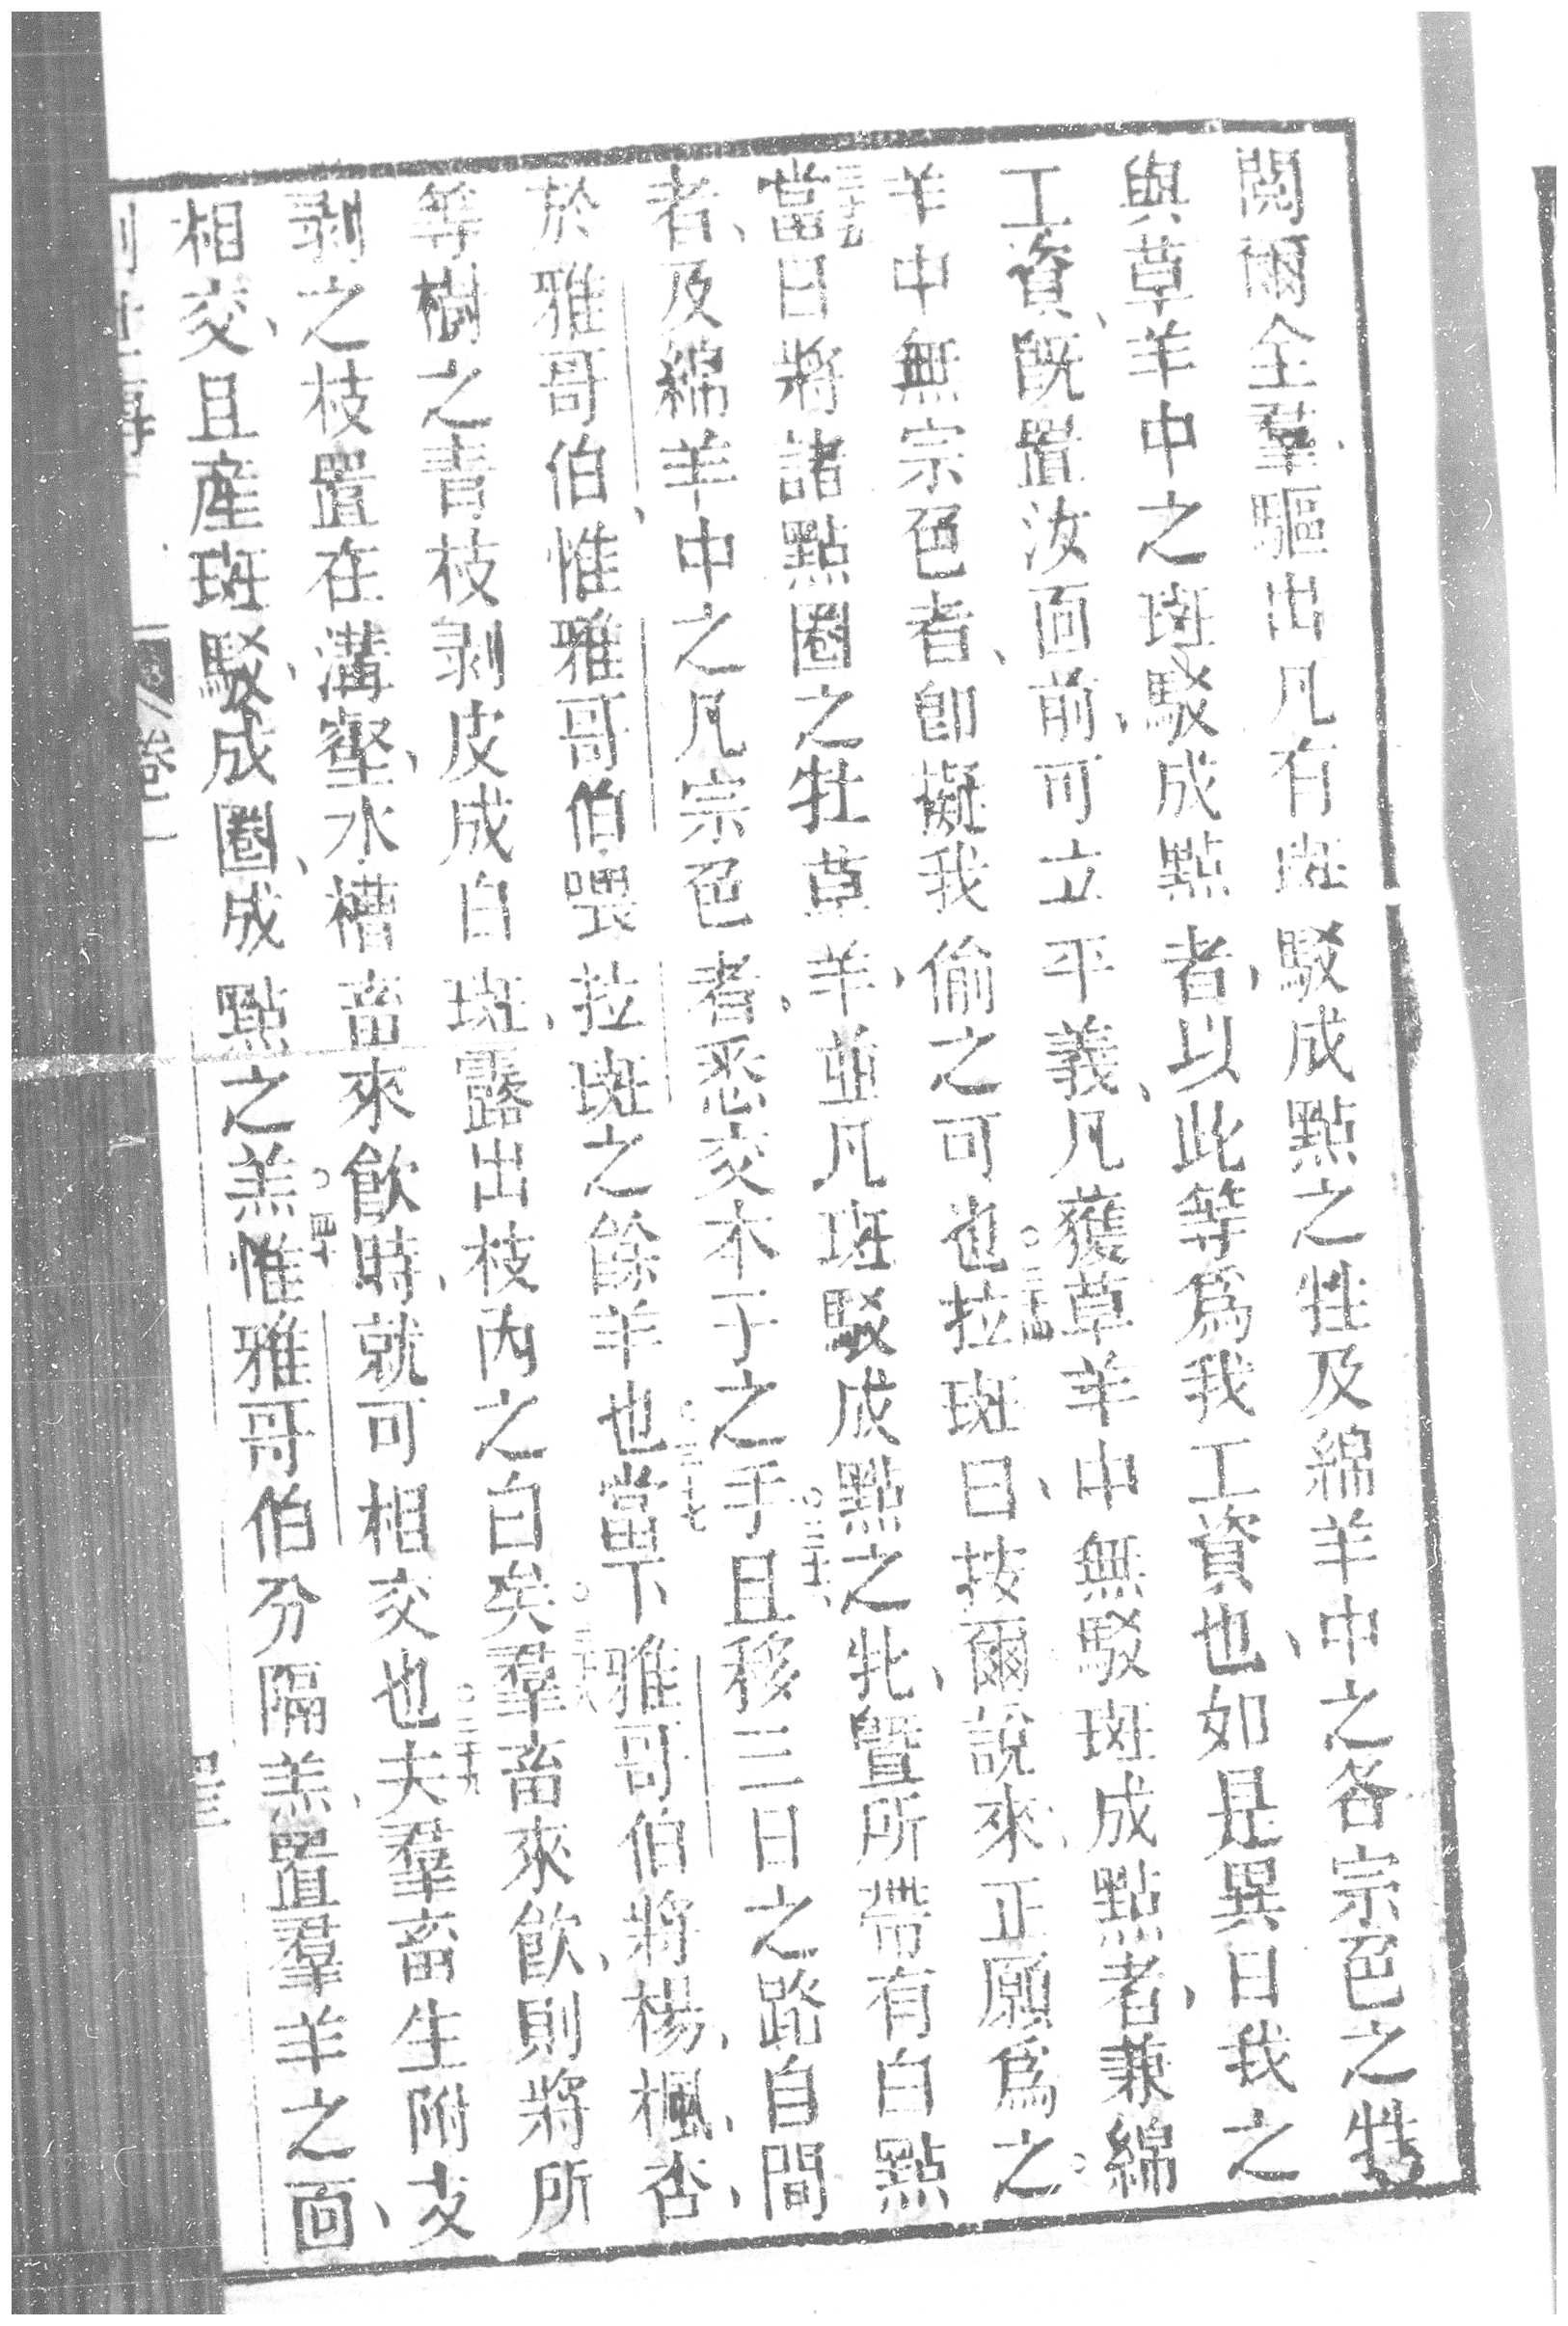 閱爾全羣驅出凡有斑駁成點之牲及綿羊中之各宗色之牲
與草羊中之斑駁成點者以此等為我工資也如是異日我之
工資既置汝面前可立平義凡獲草羊中無駁斑成點者兼綿
羊中無宗色者卽擬我偷之可也。三十四拉班曰按爾說來正願為之。
三十五當日將諸點圈之牡草羊並凡斑駁成點之牝曁所帶有白點
者及綿羊中之凡宗色者悉交本子之手。三十六且移三日之路自間
於雅哥伯惟雅哥伯喂拉班之餘羊也。三十七當下雅哥伯將楊楓杏
等樹之青枝剥皮成白斑露出枝內之白矣。三十八羣畜來飲則將所
剥之枝置在溝壑水槽畜來飲時就可相交也。三十九夫羣畜生附支
相交且產斑駁成圈成點之羔。四十惟雅哥伯分隔羔置羣羊之面